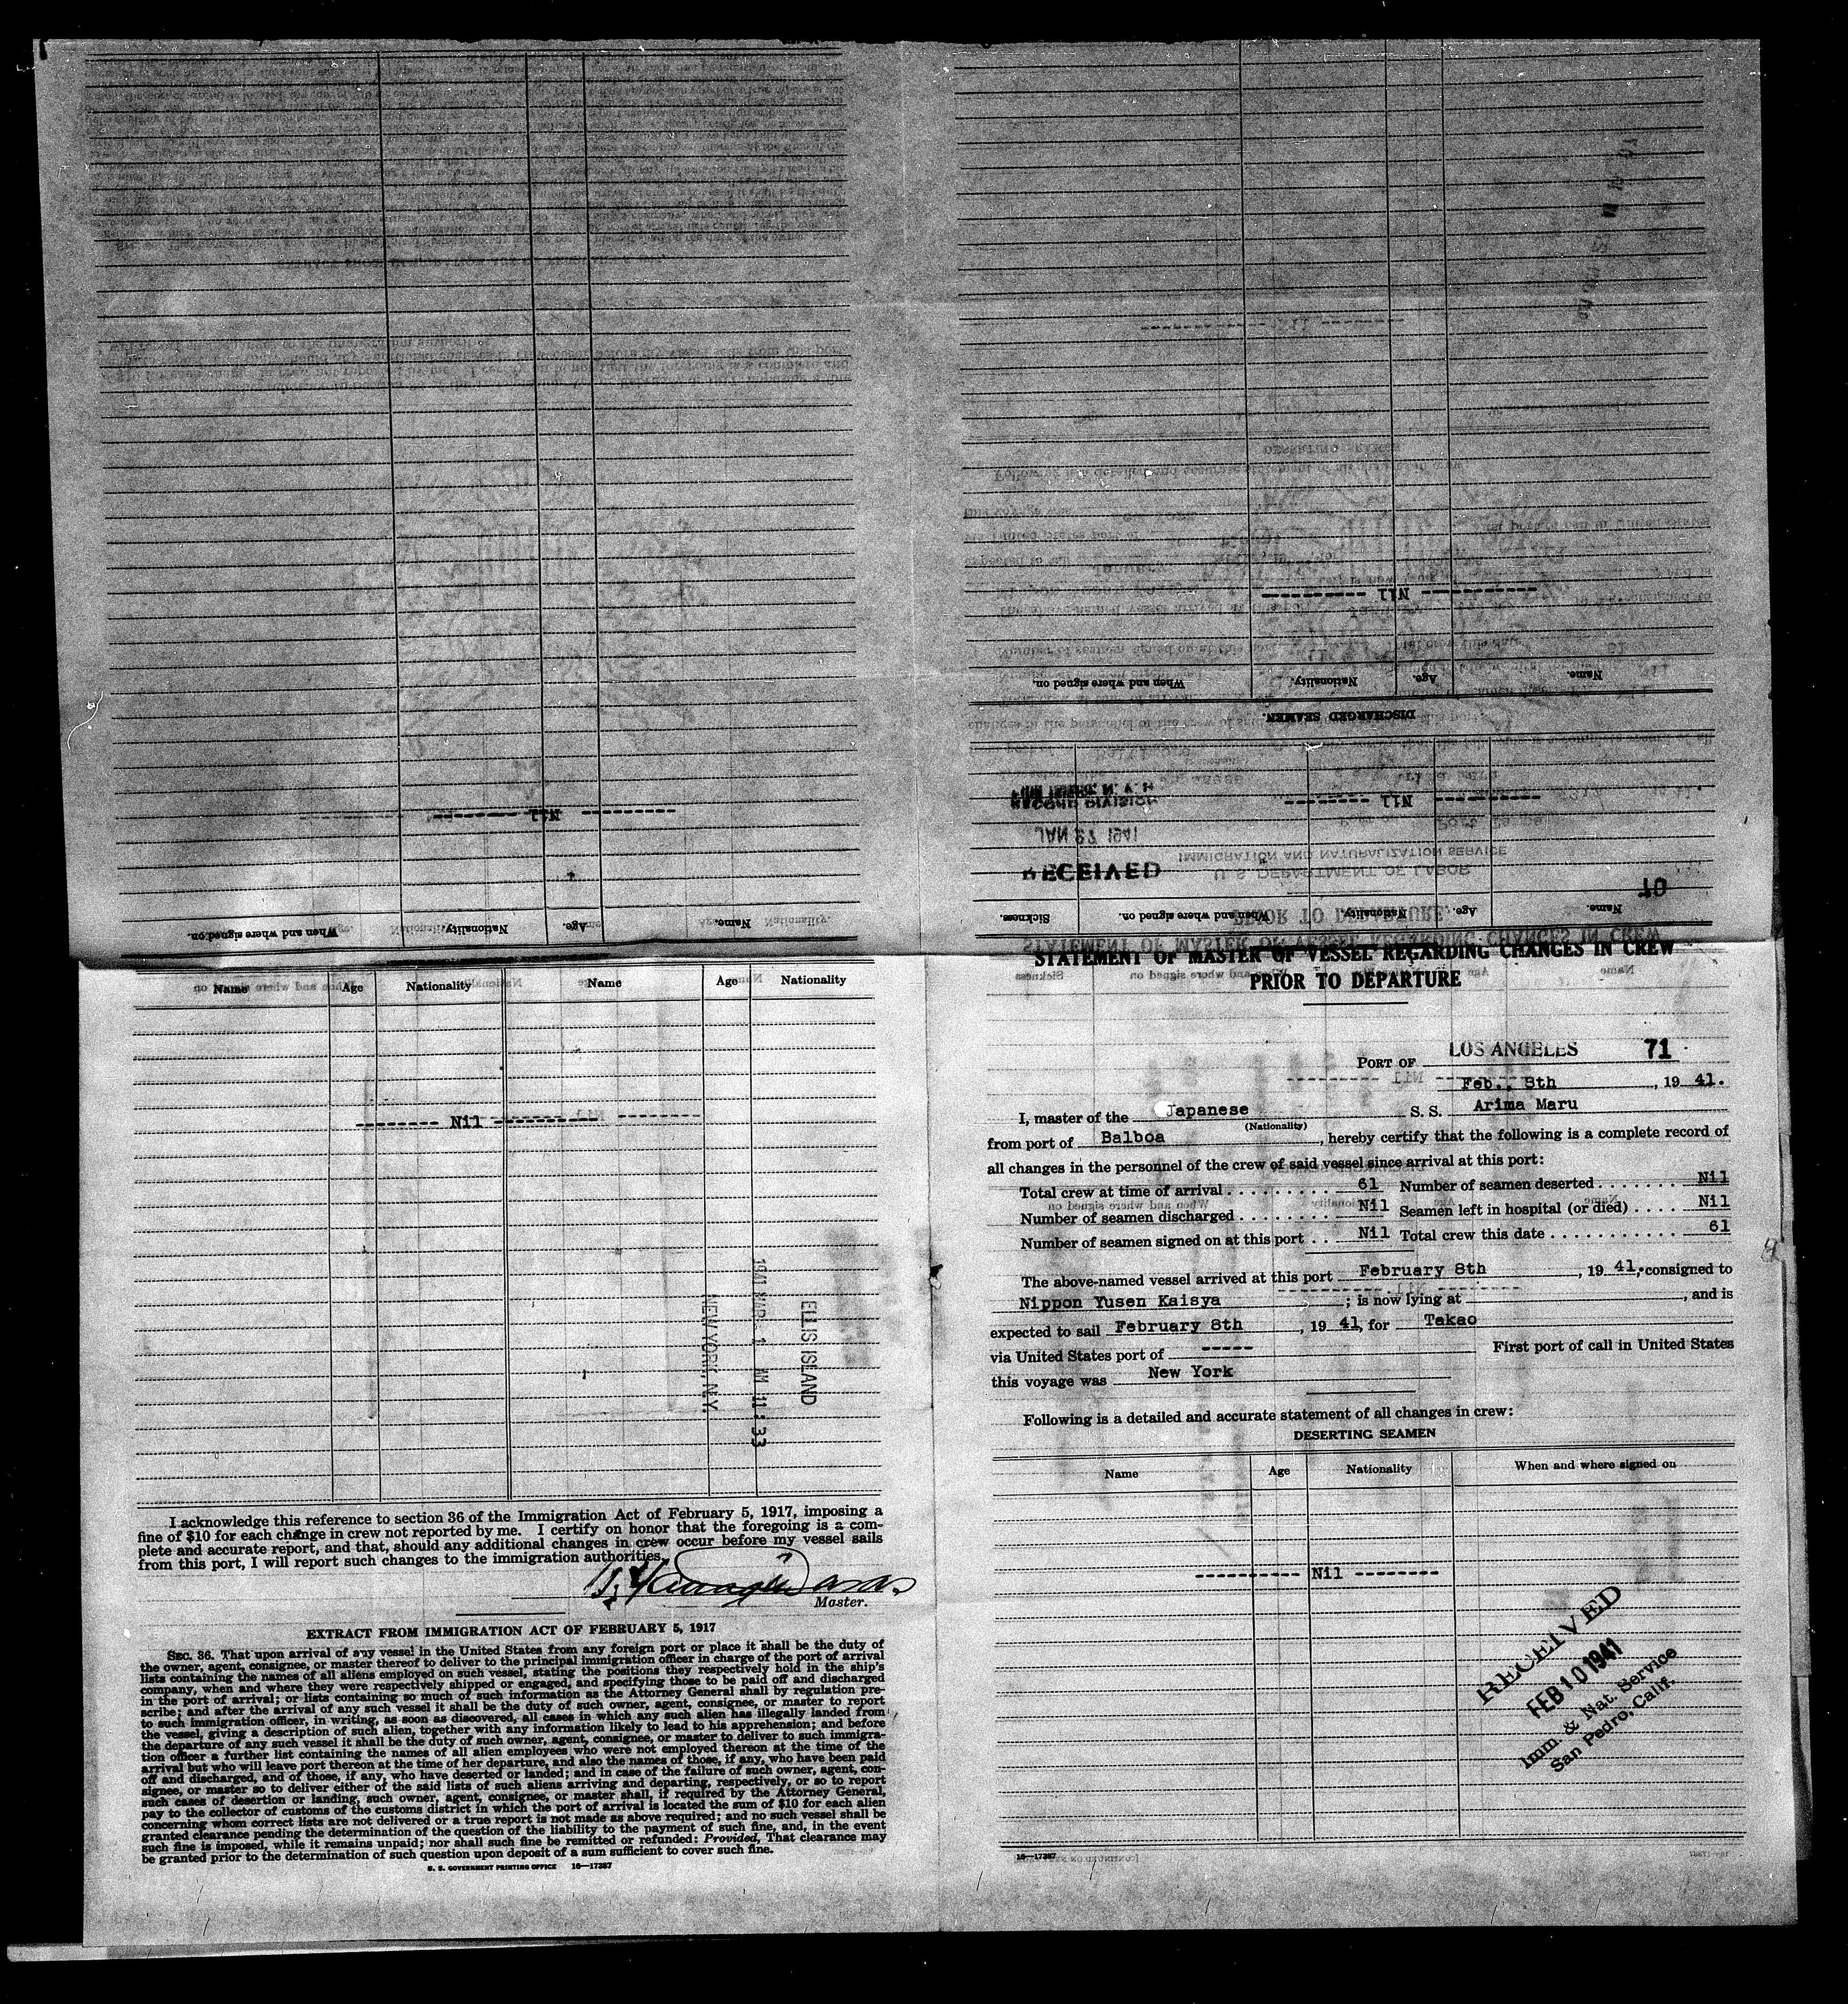 When and where signed on.
Nationality.
Age.
Name.
Nil
When and where signed on.
Nationality.
Age.
Name.
Nil
DISCHARGED SEAMEN.
Nil
SECOND DIVISION
JAN 27 1941
RECEIVED
IMMIGRATION AND NATURALIZATION SERVICE
U. S. DEPARTMENT OF LABOR
70
Sickness.
When and where signed on.
Nationality.
Age.
Name.
PRIOR TO DEPARTURE.
STATEMENT OF MASTER OF VESSEL REGARDING CHANGES IN CREW
Name Age Nationality Name Age Nationality
Nil
ELLIS ISLAND
NEW YORK, N.Y.
I acknowledge this reference to section 36 of the Immigration Act of February 5, 1917, imposing a
fine of $10 for each change in crew not reported by me. I certify on honor that the foregoing is a com-
plete and accurate report, and that, should any additional changes in crew occur before my vessel sails
from this port, I will report such changes to the immigration authorities.
Master.
EXTRACT FROM IMMIGRATION ACT OF FEBRUARY 5, 1917
SEC. 36. That upon arrival of any vessel in the United States from any foreign port or place it shall be the duty of
the owner, agent, consignee, or master thereof to deliver to the principal immigration officer in charge of the port of arrival
lists containing the names of all aliens employed on such vessel, stating the positions they respectively hold in the ship's
company, when and where they were respectively shipped or engaged, and specifying those to be paid off and discharged
in the port of arrival; or lists containing so much of such information as the Attorney General shall by regulation pre-
scribe; and after the arrival of any such vessel it shall be the duty of such owner, agent, consignee, or master to report
to such immigration officer, in writing, as soon as discovered, all cases in which any such alien has illegally landed from
the vessel, giving a description of such alien, together with any information likely to lead to his apprehension; and before
the departure of any such vessel it shall be the duty of such owner, agent, consignee, or master to deliver to such immigra-
tion officer a further list containing the names of all alien employees who were not employed thereon at the time of the
arrival but who will leave port thereon at the time of her departure, and also the names of those, if any, who have been paid
off and discharged, and of those, if any, who have deserted or landed; and in case of the failure of such owner, agent, con-
signee, or master so to deliver either of the said lists of such aliens arriving and departing, respectively, or so to report
such cases of desertion or landing, such owner, agent, consignee, or master shall, if required by the Attorney General,
pay to the collector of customs of the customs district in which the port of arrival is located the sum of $10 for each alien
concerning whom correct lists are not delivered or a true report is not made as above required; and no such vessel shall be
granted clearance pending the determination of the question of the liability to the payment of such fine, and, in the event
such fine is imposed, while it remains unpaid; nor shall such fine be remitted or refunded: Provided, That clearance may
be granted prior to the determination of such question upon deposit of a sum sufficient to cover such fine.
U. S. GOVERNMENT PRINTING OFFICE 16—17387
STATEMENT OF MASTER OF VESSEL REGARDING CHANGES IN CREW
PRIOR TO DEPARTURE
PORT OF LOS ANGELES 71
Feb., 8th, 19 41.
I, master of the Japanese S. S. Arima Maru
(Nationality)
from port of Balboa, hereby certify that the following is a complete record of
all changes in the personnel of the crew of said vessel since arrival at this port:
Total crew at time of arrival 61 Number of seamen deserted Nil
Number of seamen discharged Nil Seamen left in hospital (or died) Nil
Number of seamen signed on at this port Nil Total crew this date 61
The above-named vessel arrived at this port February 8th, 19 41, consigned to
Nippon Yusen Kaisya; is now lying at , and is
expected to sail February 8th, 19 41, for Takao
via United States port of ----- First port of call in United States
this voyage was New York
Following is a detailed and accurate statement of all changes in crew:
DESERTING SEAMEN
Name Age Nationality When and where signed on
Nil
RECEIVED
FEB 10 1941
Imm. & Nat. Service
San Pedro, Calif.
16—17387